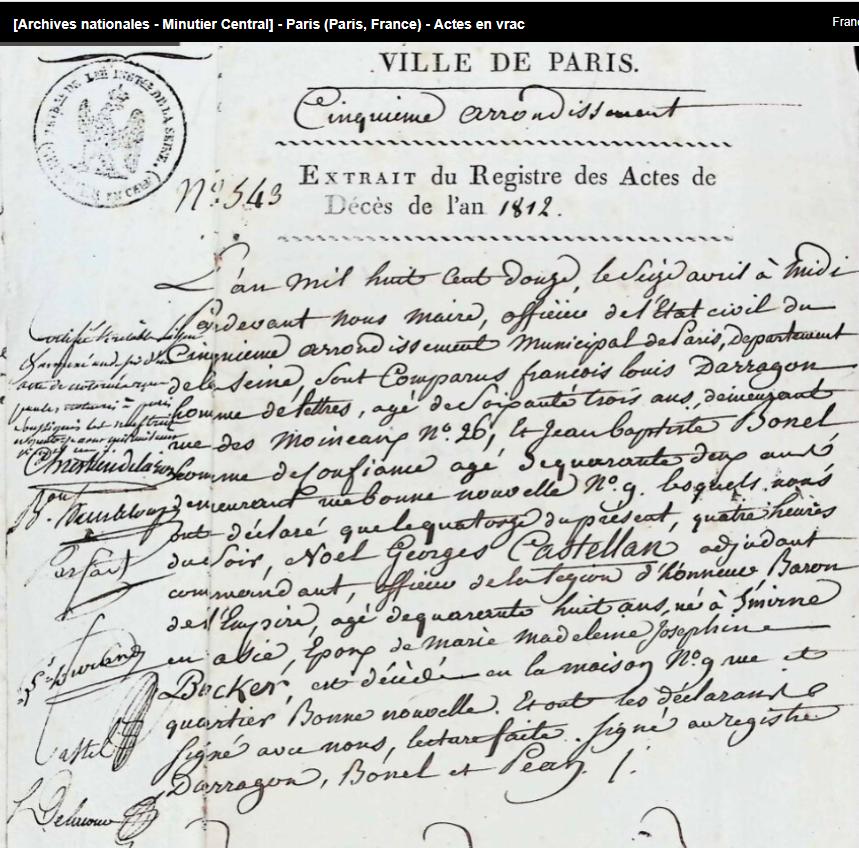 [Archives nationales - Minutier Central] - Paris (Paris, France) - Actes en vrac
Franc
VILLE DE PARIS.
Cinquieme arrondissement
DE LA SEINE.
N.° 543
EXTRAIT du Registre des Actes de
Décès de l'an 1812.
L'an mil huit Cent douze, le Seize avril à Midi
Pardevant nous maire, officier de l'Etat civil du
Cinquieme arrondissement Municipal de Paris, Departement
de la Seine, Sont Comparus françois Louis Darragon
homme de lettres, agé de Soixante trois ans, demeurant
rue des Moineaux N.° 26, Et Jean baptiste Bonel
homme de Confiance agé de quarante deux ans
demeurant rue bonne nouvelle N.° 9. lesquels nous
ont déclaré que le quatorze du présent, quatre heures
du Soir, Noel Georges Castellan adjudant
commandant, officier de la Legion d'honneur Baron
de l'Empire, agé de quarante huit ans, né à Smirne
en asie, Epoux de marie madeleine Josephine
Becker, est décédé en la maison N.° 9 rue et
quartier Bonne nouvelle. Et ont les déclarants
signé avec nous, lecture faite. Signé au registre
Darragon, Bonel et Pean ./.